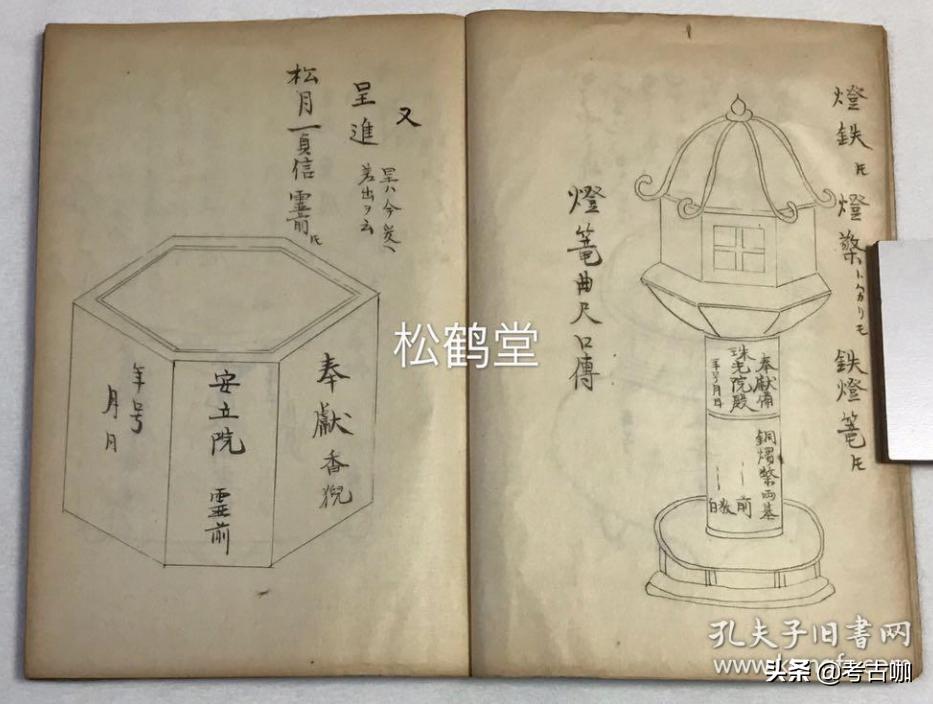 燈鉄氏
燈檠トハ分リモ
鉄燈篭氏
奉獻備
珠光院殿
年号月日
銅熠檠両基
前
白敬
燈篭曲尺口傳
又
呈進
呈ハ今炭ヘ
差出ヲ云
松月一貞信霊前氏
奉獻香猊
安立院 霊前
年号
月日
松鹤堂
孔夫子旧书网
头条 @考古咖